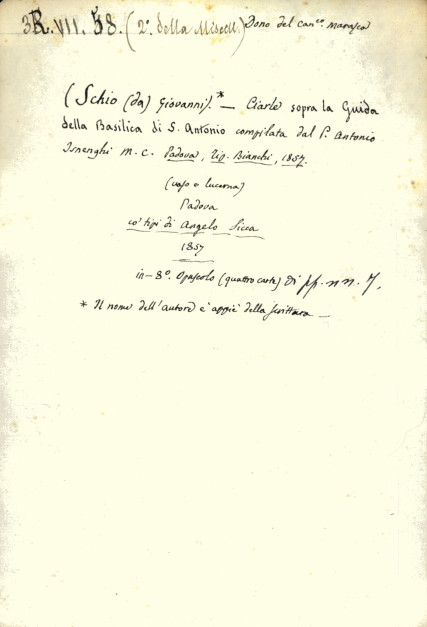 3R. VII. 58. (2º. della Miscell.) Dono del canco. Marasca
(Schio (da) Giovanni).* — Ciarle sopra la Guida
della Basilica di S. Antonio compilata dal P. Antonio
Isnenghi M. C. Padova, Tip. Bianchi, 1857.
(vaso e lucerna)
Padova
co' tipi di Angelo Sicca
1857
in-8º. Opuscolo (quattro carte) di pp. n n. 7.
* Il nome dell'autore è appiè della scrittura —